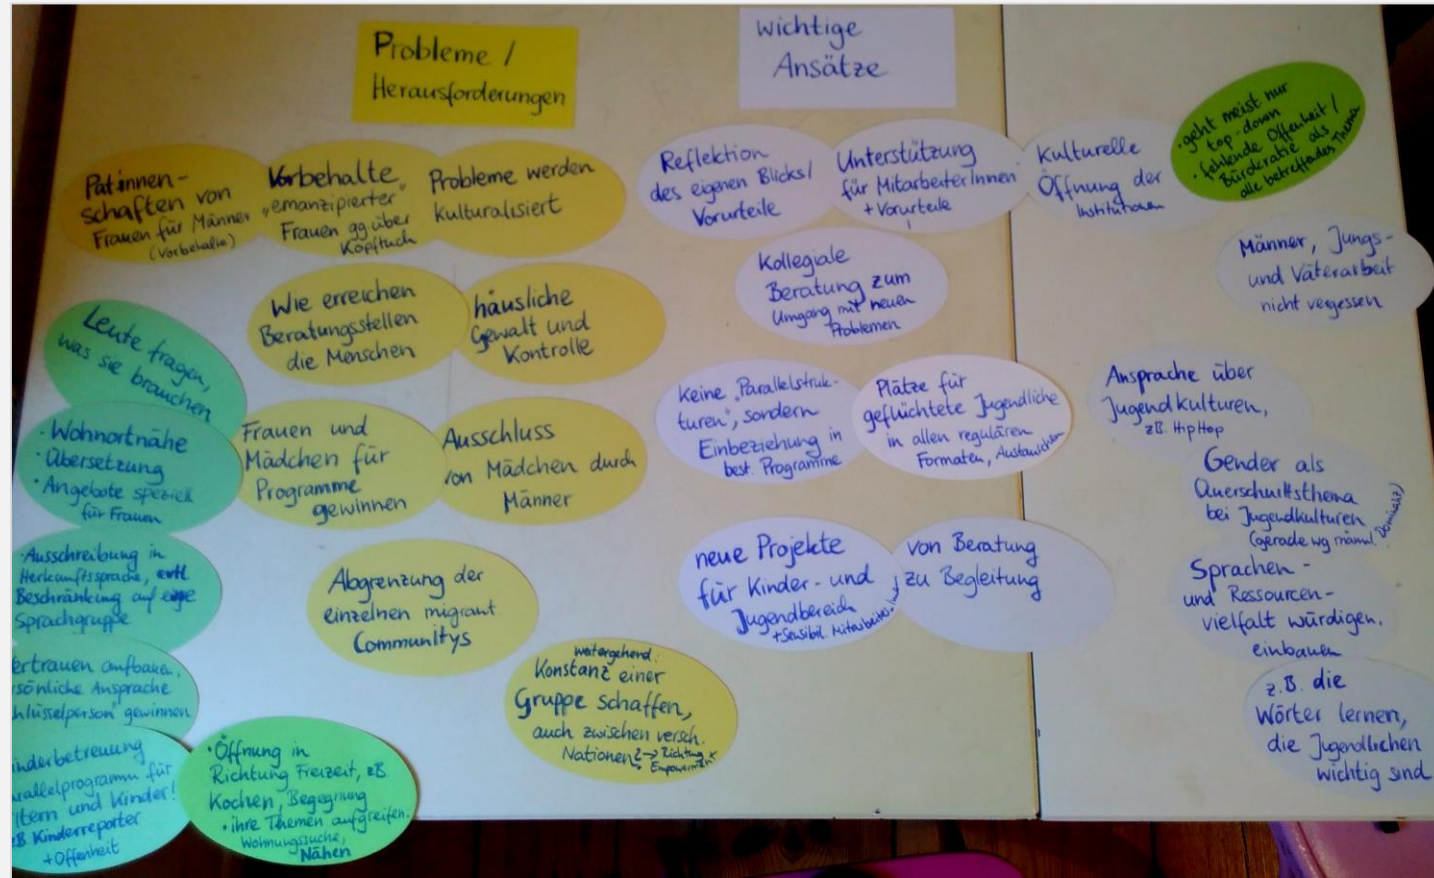 Probleme /
Herausforderungen
Patinnen-
schaften von
Frauen für Männer
(Vorbehalte)
Vorbehalte
"emanzipierter"
Frauen ggüber
Kopftuch
Probleme werden
kulturalisiert
Wie erreichen
Beratungsstellen
die Menschen
häusliche
Gewalt und
Kontrolle
Leute fragen,
was sie brauchen
· Wohnortnähe
· Übersetzung
· Angebote speziell
für Frauen
Frauen und
Mädchen für
Programme
gewinnen
Ausschluss
von Mädchen durch
Männer
· Ausschreibung in
Herkunftssprache, evtl
Beschränkung auf eine
Sprachgruppe
Abgrenzung der
einzelnen migrant.
Communitys
ertrauen aufbauen,
sönliche Ansprache
hlüsselperson" gewinnen
weitergehend:
Konstanz einer
Gruppe schaffen,
auch zwischen versch.
Nationen? → Richtung
Empowerment
inderbetreuung
rallelprogramm für
ltern und Kinder!
zB Kinderreporter
+ Offenheit
· Öffnung in
Richtung Freizeit, zB.
Kochen, Begegnung
· ihre Themen aufgreifen:
Wohnungssuche,
Nähen
wichtige
Ansätze
Reflektion
des eigenen Blicks/
Vorurteile
Unterstützung
für MitarbeiterInnen
+ Vorurteile
Kulturelle
Öffnung der
Institutionen
· geht meist nur
top-down
· fehlende Offenheit /
Bürokratie als
alle betreffendes Thema
Kollegiale
Beratung zum
Umgang mit neuen
Problemen
Männer, Jungs-
und Väterarbeit
nicht vergessen
Keine "Parallelstruk-
turen", sondern
Einbeziehung in
best. Programme
Plätze für
geflüchtete Jugendliche
in allen regulären
Formaten, Austauschen
Ansprache über
Jugendkulturen,
zB. HipHop
Gender als
Querschnittsthema
bei Jugendkulturen
(gerade wg männl.
Dominanz)
neue Projekte
für Kinder- und
Jugendbereich
+ Sensibil. Mitarbeiter
von Beratung
zu Begleitung
Sprachen-
und Ressourcen-
vielfalt würdigen,
einbauen
z.B. die
Wörter lernen,
die Jugendlichen
wichtig sind